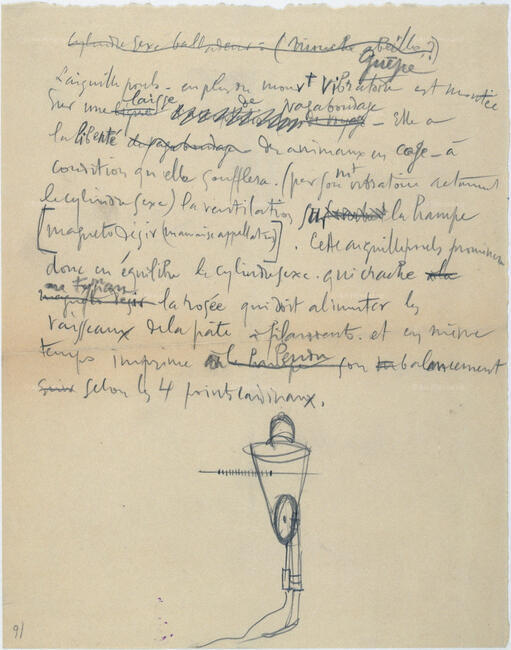 Cylindre sexe balladeur : (mouche abeille?)
Guêpe
L'aiguille pouls - en plus du mouvt vibratoire est montée
sur une ligne laisse de vagabondage - Elle a
la liberté de vagabondage des animaux en cage - à
condition qu'elle soufflera (par son mt vibratoire actionnant
le cylindre sexe) la ventilation sur la hampe
[magneto désir (mauvaise appellation)]. Cette aiguille pouls promènera
donc en équilibre le cylindre sexe. qui crache à la
magneto désir la rosée qui doit alimenter les
vaisseaux de la pâte à filaments. et en même
temps imprime à la hampe Pendu son balancement
selon les 4 points cardinaux.
91